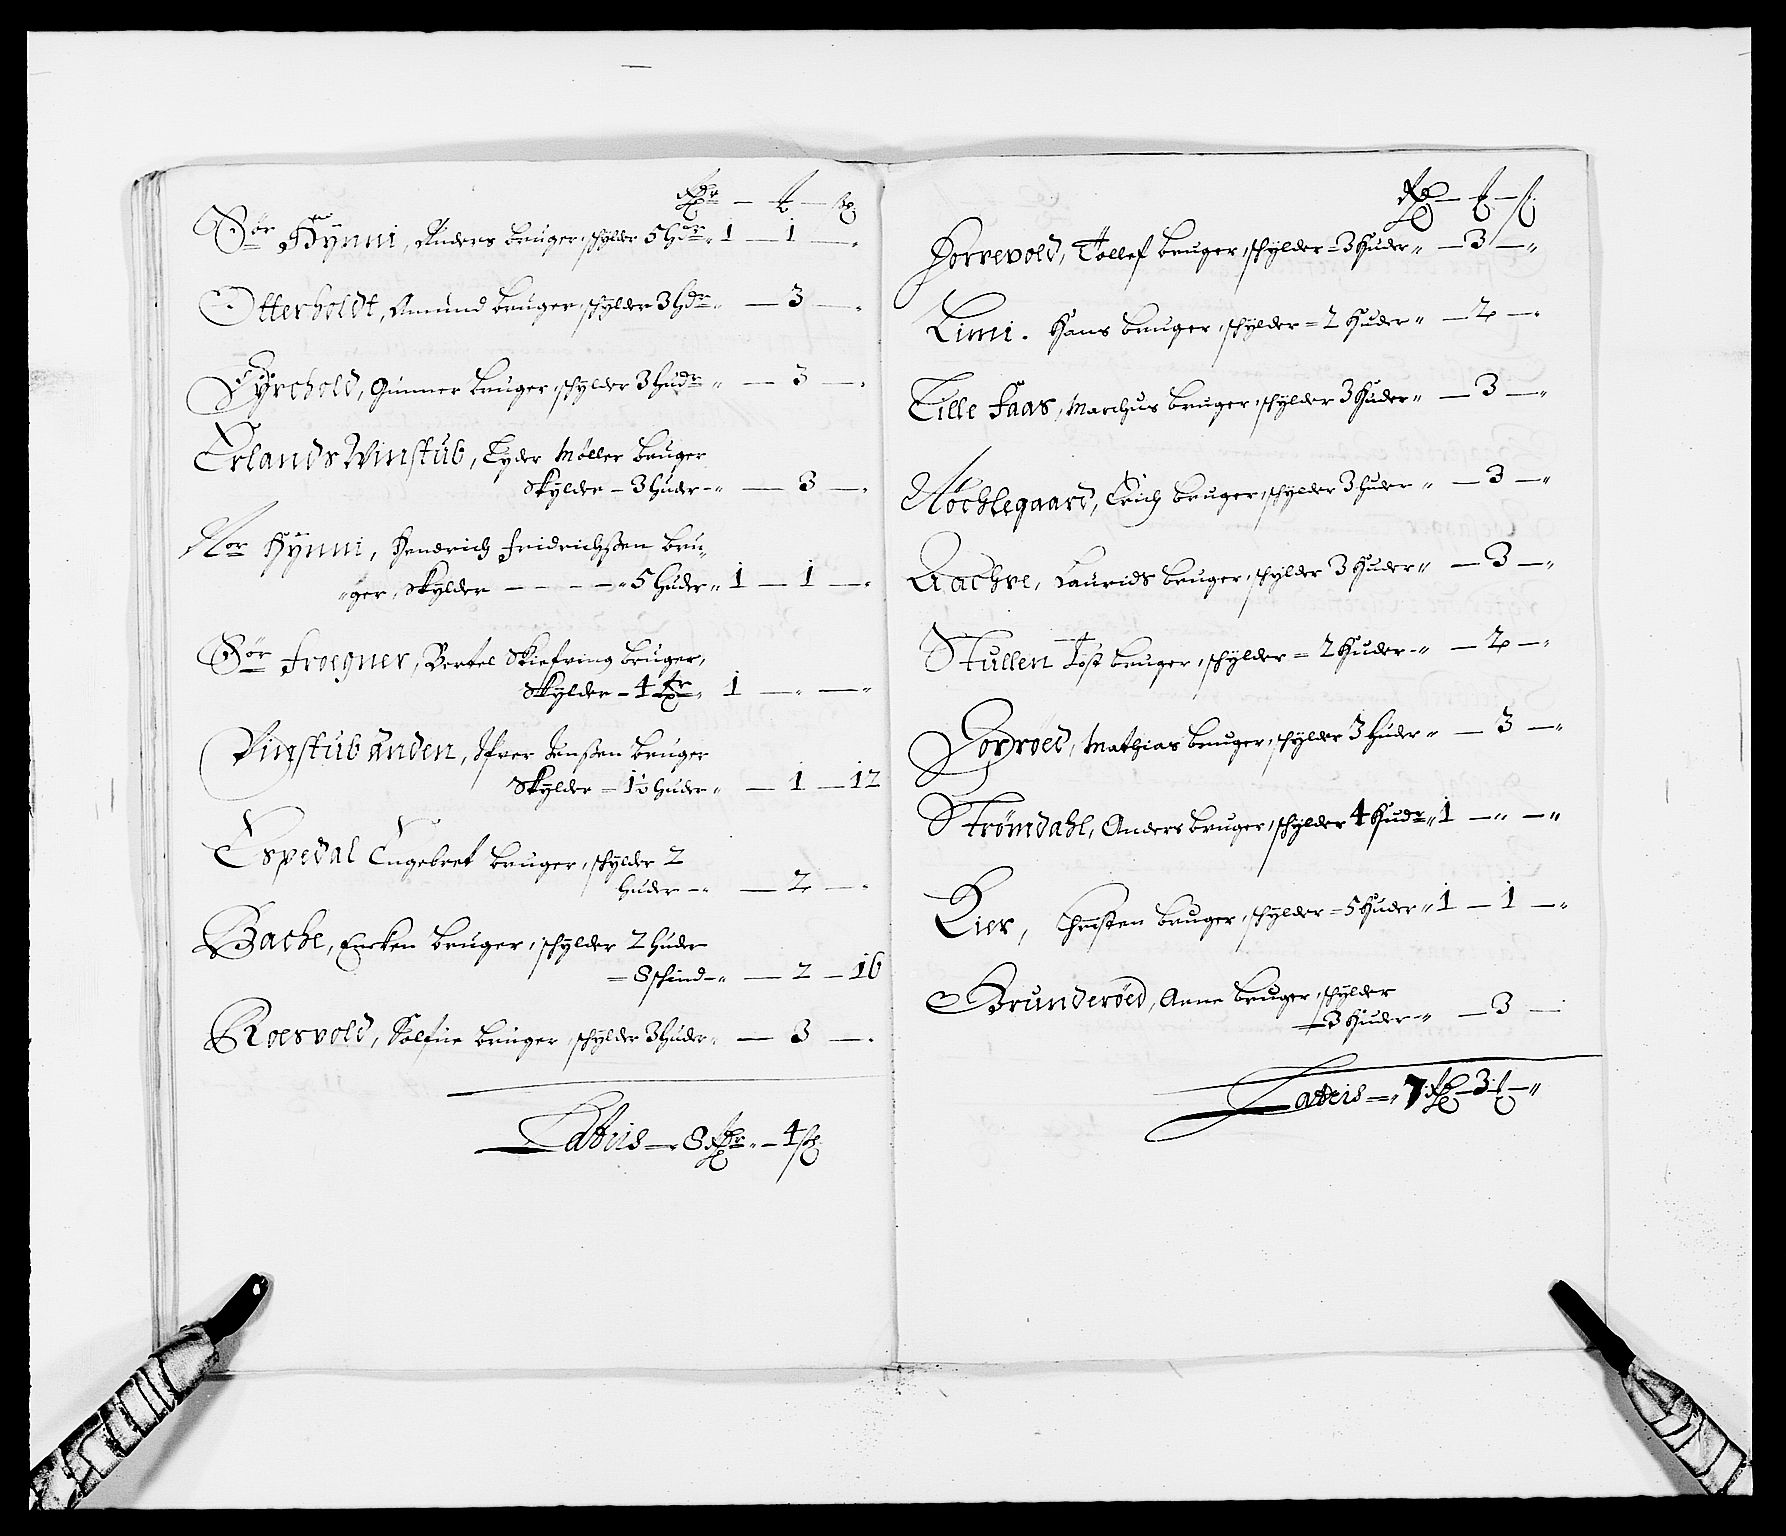 Rdr — ƭ — sk
Sör Hynni, Anders bruger, schylder 5 hudr „ 1 — 1 — „
Otterholdt, Amund bruger, schylder 3 hdr „ — 3 — „
Fyrehold, Gunner bruger, schylder 3 hudr „ — 3 — „
Erlands Winstub, Tyder Møller bruger
Skylder — 3 huder — „ — 3 — „
Nor Hynni, Hendrich Fridrichssen bru„
„ger, Skylder — — — — „ 5 huder „ 1 — 1 — „
Sör Froegner, Bertel Skiefving bruger,
Skylder — 4 „ 1 — „ — „
Vinstub anden, Ifver Jenssen bruger
Skylder — 1½ huder „ — 1 — 12
Espedal Engebret bruger, schylder 2
huder — „ — 2 — „
Bache, Encken bruger, schylder 2 huder
= 8 schind — „ — 2 — 16
Roesvold, bruger, schylder 3 huder „ — 3 — „
Lateris — 8 Rdr „ — 4 sk
Rd — ƭ — s
Horrevold, Tollef bruger, schylder = 3 Huder „ — 3 — „
Limi. Hans bruger, schylder = 2 Huder „ — 2 — „
Lille Faas, Marchus bruger, schylder 3 Huder „ — 3 — „
Nochlegaard, Erich bruger, schylder 3 huder „ — 3 — „
Aachre, Laurids bruger, schylder 3 Huder „ — 3 — „
Stullen Tost bruger, schylder = 2 Huder — „ — 2 — „
Jorröed, Mathias bruger, schylder 3 huder „ — 3 — „
Strömdahl, Anders bruger, schylder 4 Hudr „ 1 — „ — „
Lier, Christen bruger, schylder = 5 Huder „ 1 — 1 — „
Brunderöed, Anne bruger, schylder
— 3 Huder — „ — 3 —
Lateris — „ 7 Rd — 3 ƭ — „